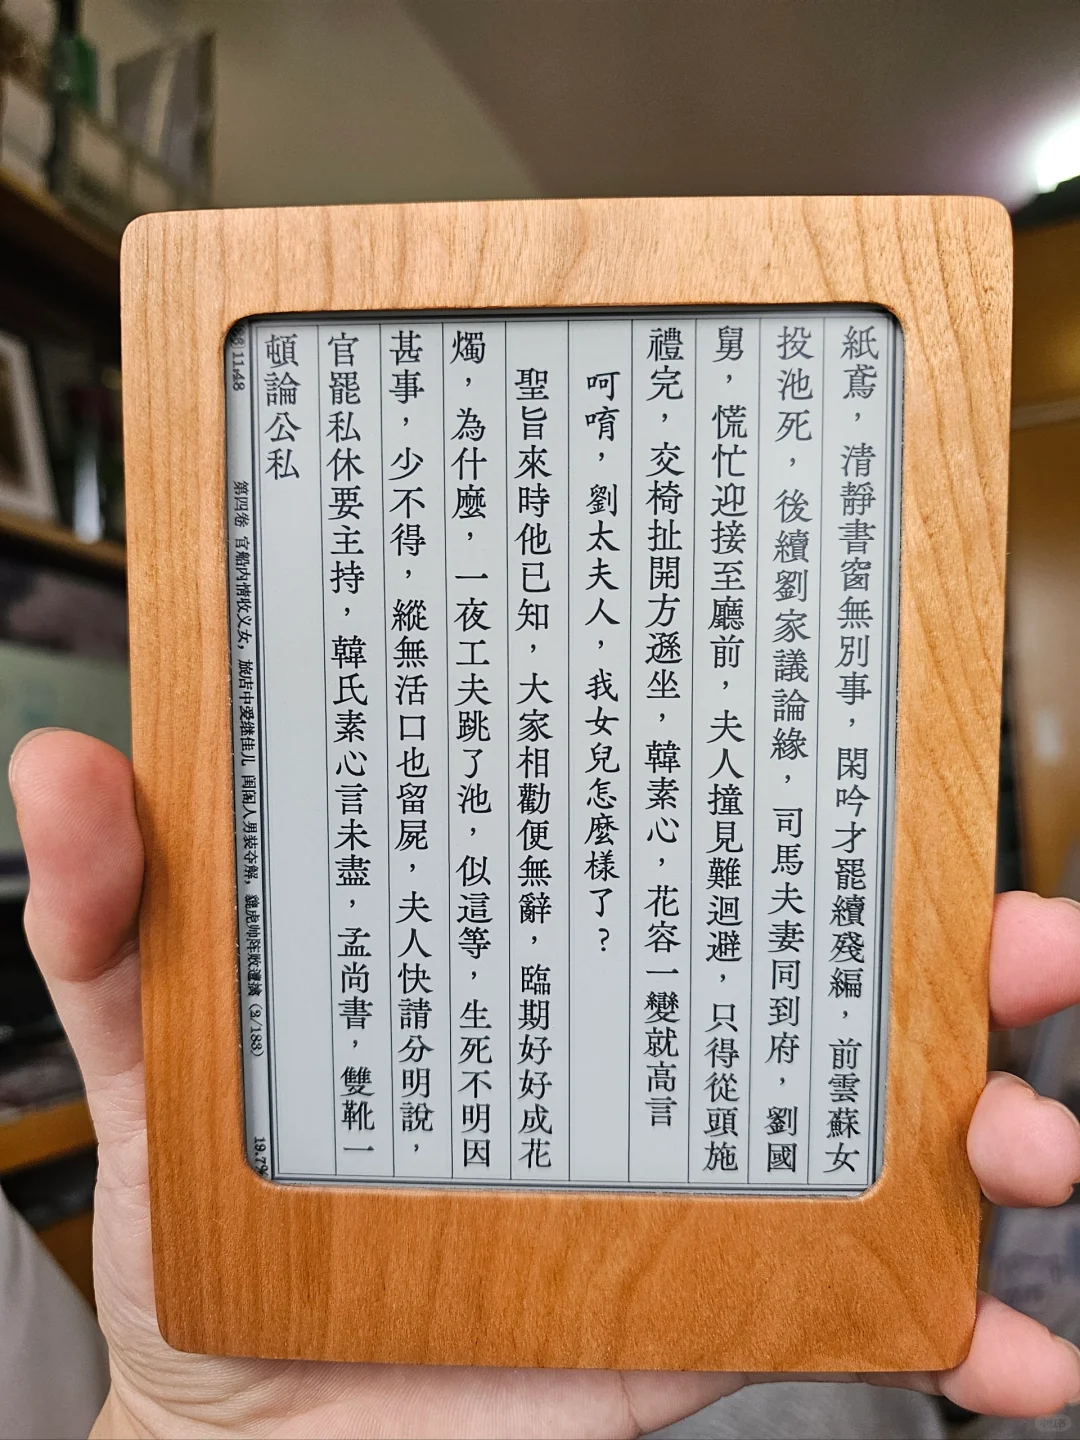 紙鳶，清靜書窗無別事，閑吟才罷續殘編，前雲蘇女
投池死，後續劉家議論緣，司馬夫妻同到府，劉國
舅，慌忙迎接至廳前，夫人撞見難迴避，只得從頭施
禮完，交椅扯開方遜坐，韓素心，花容一變就高言
呵唷，劉太夫人，我女兒怎麼樣了？
聖旨來時他已知，大家相勸便無辭，臨期好好成花
燭，為什麼，一夜工夫跳了池，似這等，生死不明因
甚事，少不得，縱無活口也留屍，夫人快請分明說，
官罷私休要主持，韓氏素心言未盡，孟尚書，雙靴一
頓論公私
11:48
第四卷 官船内情收义女，旅店中爱继佳儿 闺阁人男装夺解，貔虎帅阵败遭擒 (3/183)
19.7%